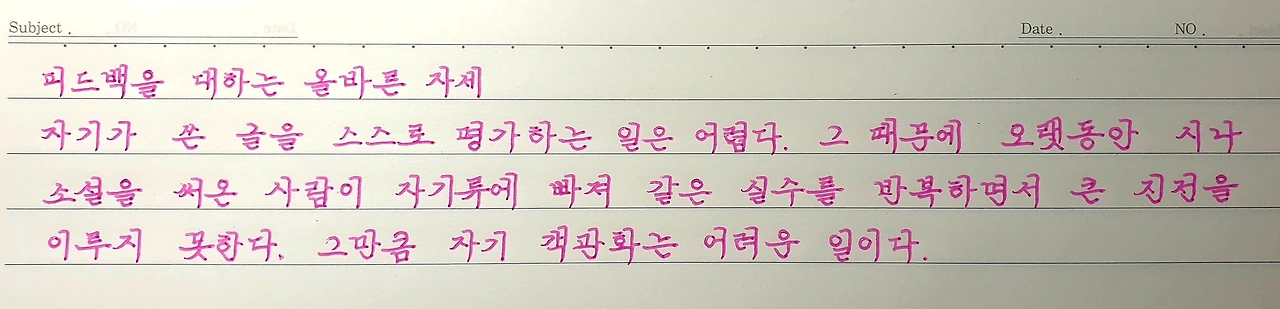 Subject . Date . NO .
피드백을 대하는 올바른 자세
자기가 쓴 글을 스스로 평가하는 일은 어렵다. 그 때문에 오랫동안 시나
소설을 써온 사람이 자기류에 빠져 같은 실수를 반복하면서 큰 진전을
이루지 못한다. 그만큼 자기 객관화는 어려운 일이다.